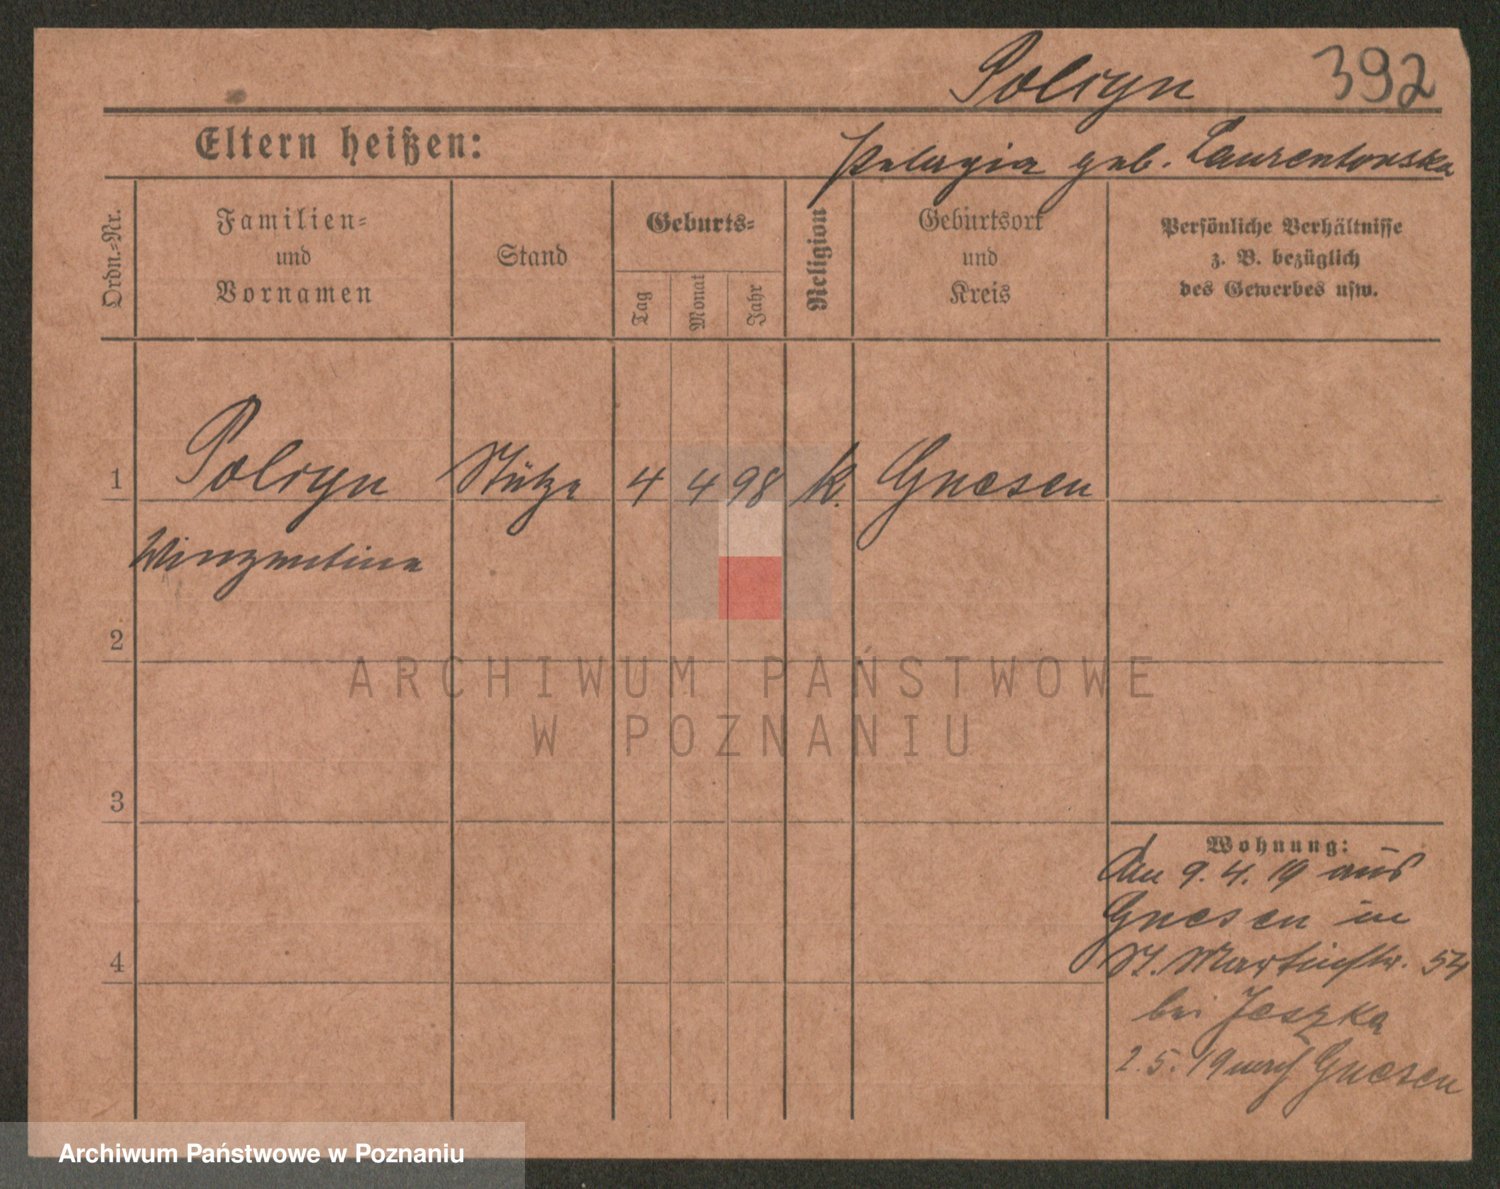 Policyn 392
Eltern heißen:
Pelagia geb. Laurentowska
Ordn.-Nr.
Familien-
und
Vornamen
Stand
Geburts-
Tag
Monat
Jahr
Religion
Geburtsort
und
Kreis
Persönliche Verhältnisse
z. B. bezüglich
des Gewerbes usw.
1 Stütze 4 4 98 k. Gnesen
Winzentina
2
3
4
Wohnung:
Am 9.4.19 aus
Gnesen in
St. Martinstr. 54
bei Jeszka
2.5.19 nach Gnesen
ARCHIWUM PAŃSTWOWE
W POZNANIU
Archiwum Państwowe w Poznaniu